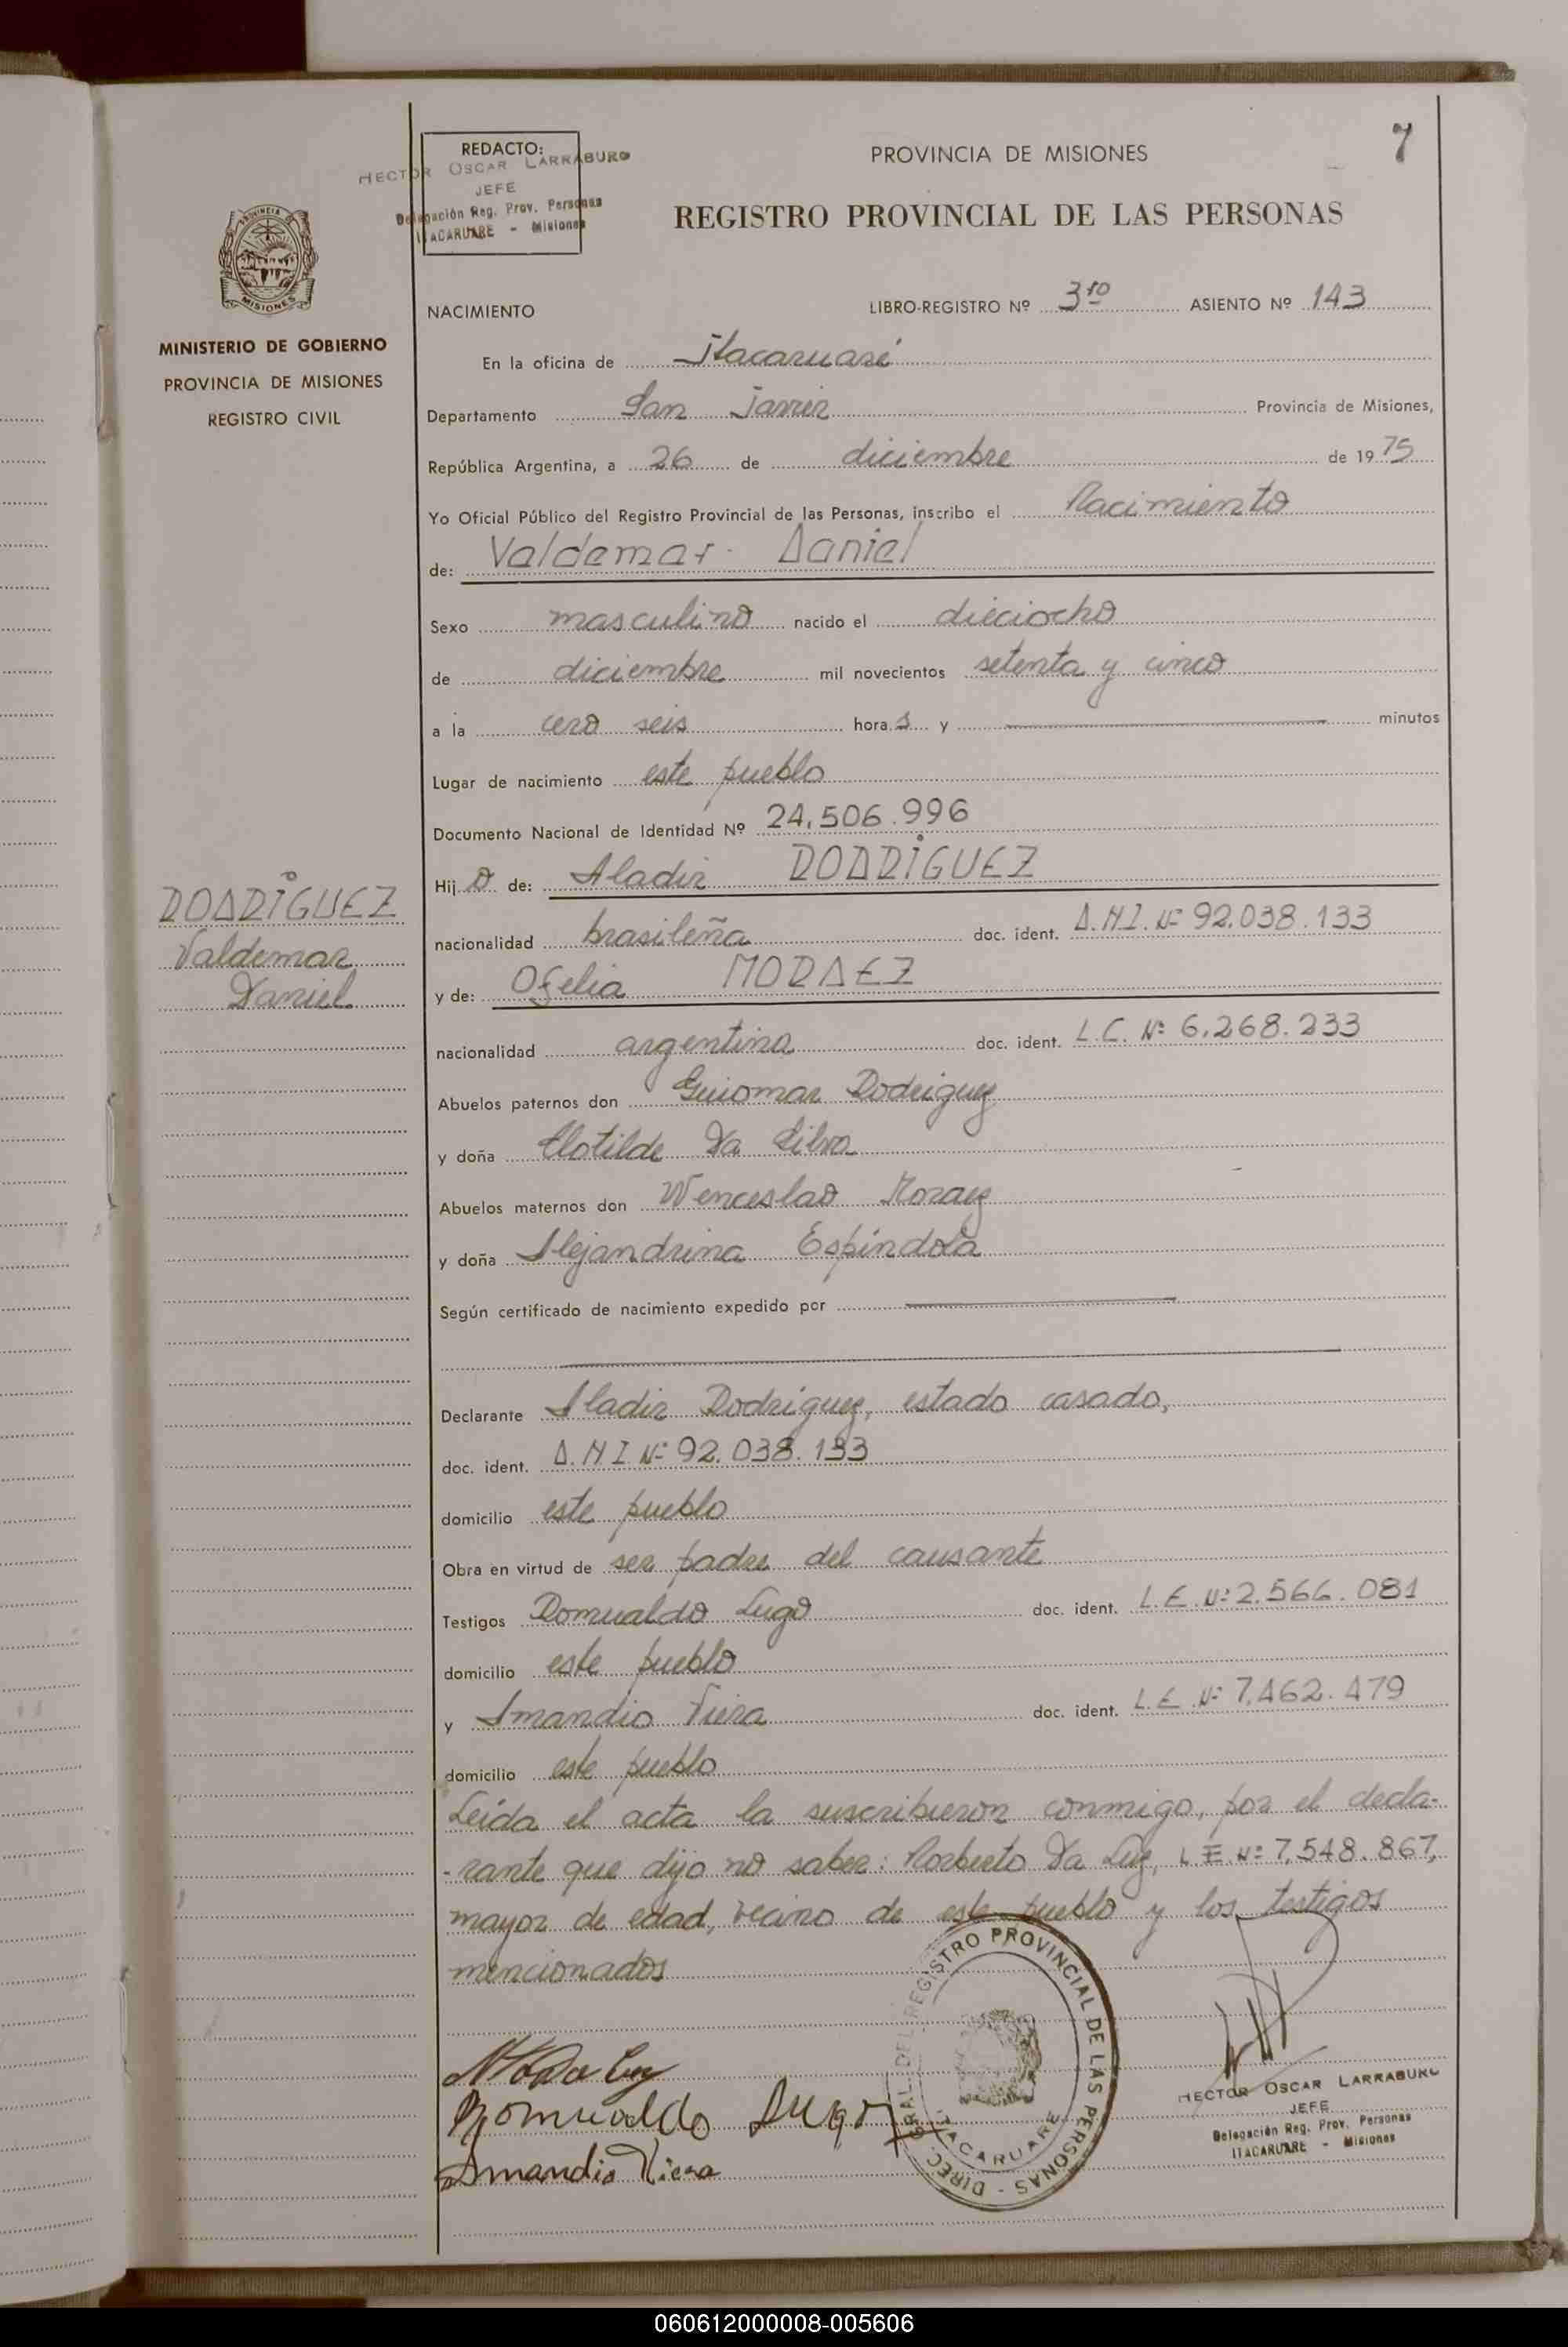 REDACTO:
HECTOR OSCAR LARRABURO
JEFE
Delegación Reg. Prov. Personas
ITACARUARE - Misiones
PROVINCIA DE MISIONES
7
REGISTRO PROVINCIAL DE LAS PERSONAS
PROVINCIA DE
MISIONES
MINISTERIO DE GOBIERNO
PROVINCIA DE MISIONES
REGISTRO CIVIL
NACIMIENTO LIBRO-REGISTRO Nº 3ro ASIENTO Nº 143
En la oficina de Itacaruaré
Departamento San Javier Provincia de Misiones,
República Argentina, a 26 de diciembre de 1975
Yo Oficial Público del Registro Provincial de las Personas, inscribo el Nacimiento
de: Valdemar Daniel
Sexo masculino nacido el dieciocho
de diciembre mil novecientos setenta y cinco
a la cero seis hora s y minutos
Lugar de nacimiento este pueblo
Documento Nacional de Identidad Nº 24.506.996
Hij o de: Aladir RODRIGUEZ
nacionalidad brasileña doc. ident. D.N.I. Nº 92.038.133
y de: Ofelia MORAEZ
nacionalidad argentina doc. ident. L.C. Nº 6.268.233
Abuelos paternos don Guiomar Rodriguez
y doña Clotilde Da Silva
Abuelos maternos don Wenceslao Moraez
y doña Alejandrina Espíndola
Según certificado de nacimiento expedido por
Declarante Aladir Rodriguez, estado casado,
doc. ident. D.N.I. Nº 92.038.133
domicilio este pueblo
Obra en virtud de ser padre del causante
Testigos Romualdo Lugo doc. ident. L.E. Nº 2.566.081
domicilio este pueblo
y Amandio Viera doc. ident. L.E. Nº 7.462.479
domicilio este pueblo
Leída el acta la suscribieron conmigo, por el decla-
-rante que dijo no saber: Norberto Da Luz, L.E. Nº 7.548.867,
mayor de edad, vecino de este pueblo y los testigos
mencionados
RODRIGUEZ
Valdemar
Daniel
Da Luz
Romualdo Lugo
Amandio Viera
DIREC. GRAL. DEL REGISTRO PROVINCIAL DE LAS PERSONAS -
ITACARUARE
HECTOR OSCAR LARRABURO
JEFE
Delegación Reg. Prov. Personas
ITACARUARE - Misiones
060612000008-005606